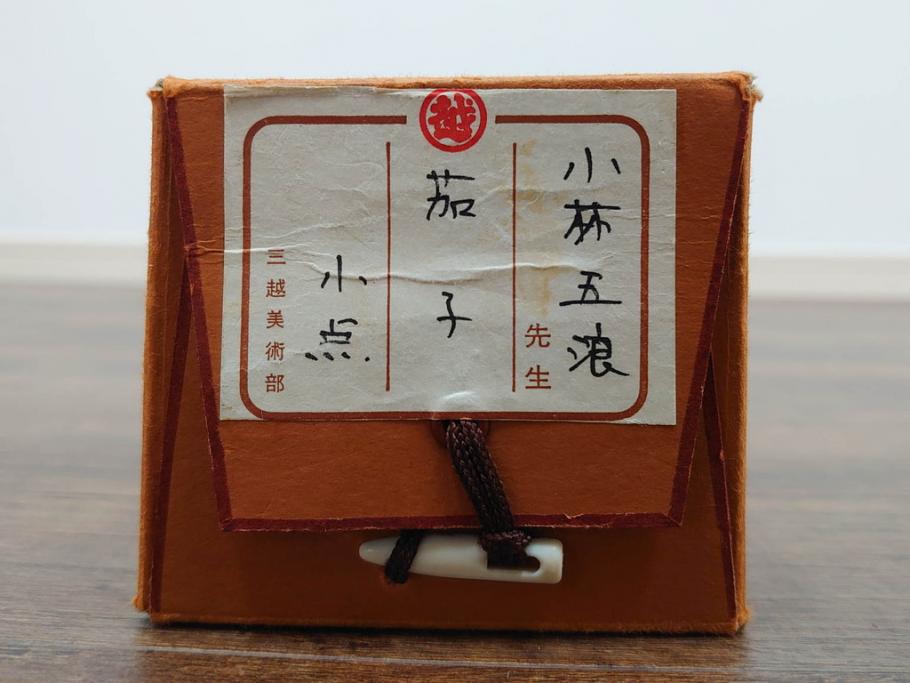 越
小林五浪
先生
茄子
小点
三越美術部